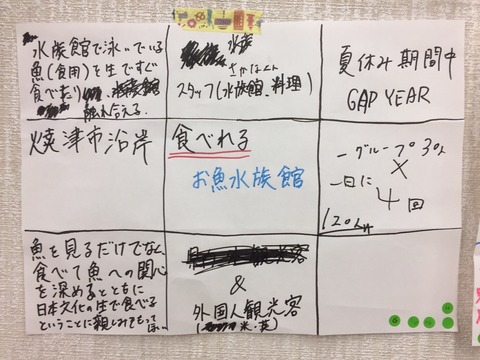 水族館で泳いでいる
魚(食用)を生ですぐ
食べたり
触れ合える。
水族
さかなくん
スタッフ(水族館、料理)
夏休み期間中
GAP YEAR
焼津市沿岸
食べれる
お魚水族館
一グループ30人
×
一日に
4回
120人
魚を見るだけでなく
食べて魚への関心
を深めるとともに
日本文化の生で食べる
ということに親しみをもって
ほしい
&
外国人観光客
米・英)